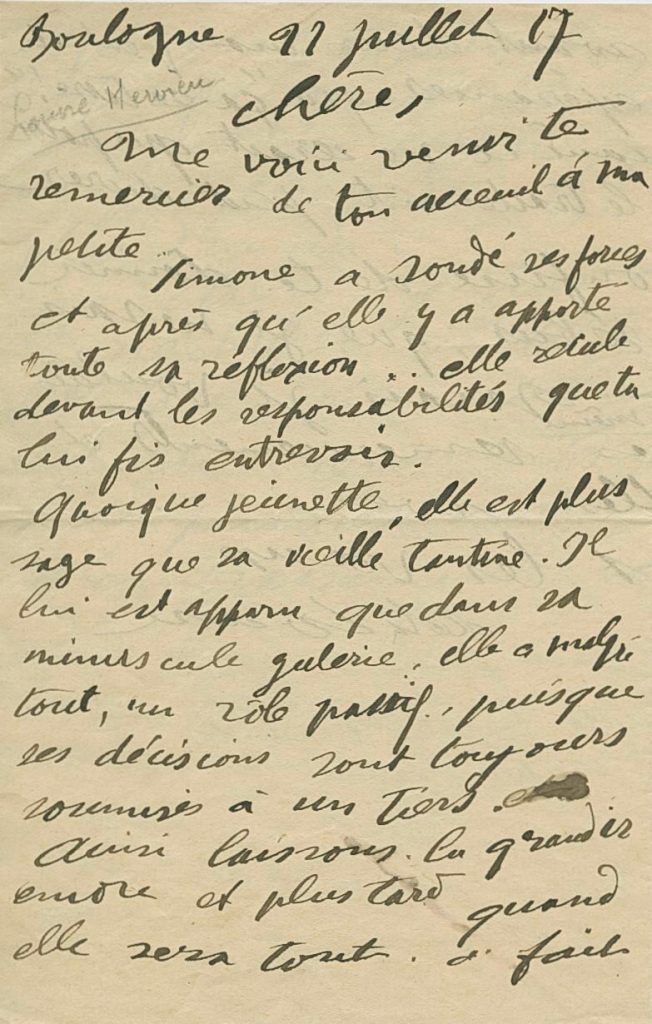 Boulogne 21 juillet 17
Louise Hervieu
Chère,
Me voici venir te
remercier de ton acceuil à ma
petite
Simone a sondé ses forces
et après qu'elle y a apporté
toute sa réflexion .. elle recule
devant les responsabilités que tu
lui fis entrevoir.
Quoique jeunette, elle est plus
sage que sa vieille tantine. Il
lui est apparu que dans sa
minuscule galerie, elle a malgré
tout, un rôle passif, puisque
ses décisions sont toujours
soumises à un tiers.
Ainsi laissons-la grandir
encore et plus tard quand
elle sera tout à fait